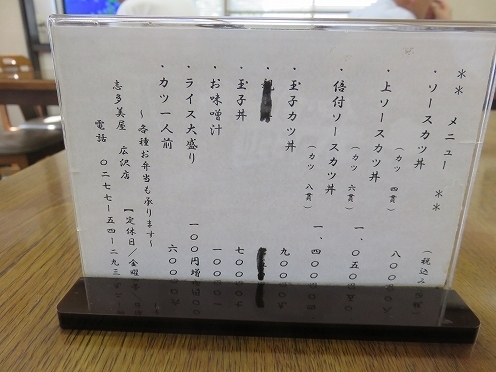 ** メニュー **
(税込み
・ソースカツ丼
(カツ 四貫)
八〇〇
・上ソースカツ丼
(カツ 六貫)
一、〇五〇
・倍付ソースカツ丼
(カツ 八貫)
一、四〇〇
・玉子カツ丼
九〇〇
・玉子丼
七〇〇
・お味噌汁
一〇〇
・ライス大盛り
一〇〇円増
・カツ一人前
六〇〇
～各種お弁当も承ります～
志多美屋 広沢店 【定休日/金曜
電話 〇二七七ー五四ー二九三